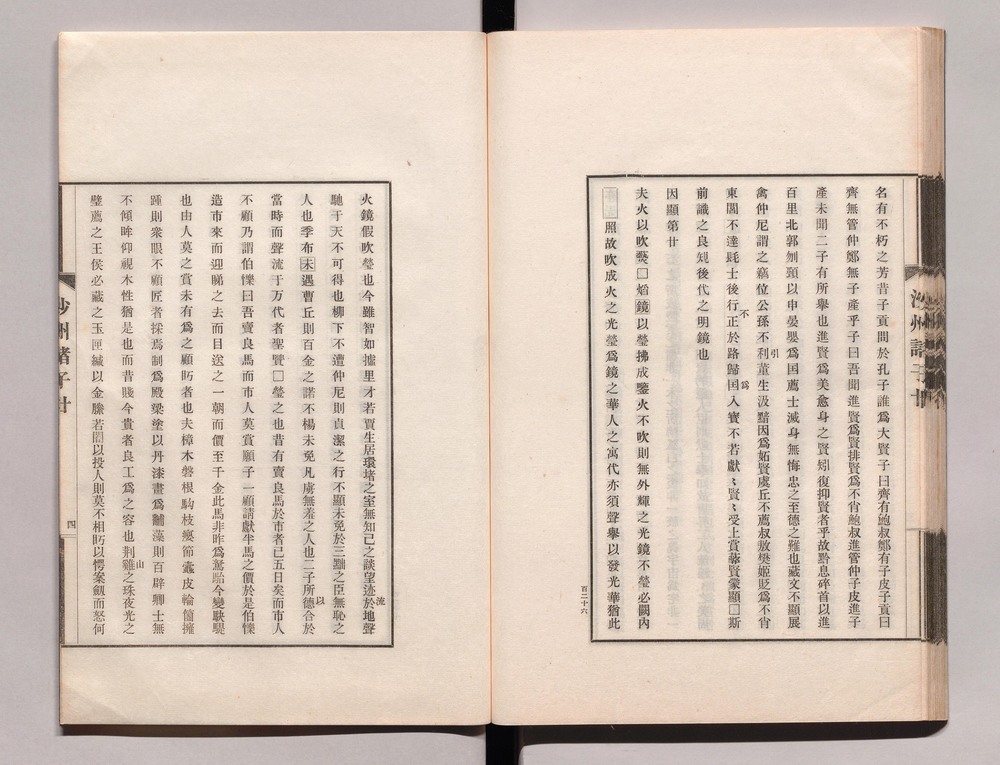 名有不朽之芳昔子貢問於孔子誰爲大賢子曰齊有鮑叔鄭有子皮子貢曰
齊無管仲鄭無子產乎子曰吾聞進賢爲賢排賢爲不肖鮑叔進管仲子皮進子
產未聞二子有所舉也進賢爲美愈身之賢矧復抑賢者乎故黔息碎首以進
百里北郭刎頸以申晏嬰爲国薦士滅身無悔忠之至德之難也臧文不顯展
禽仲尼謂之竊位公孫不利董生汲黯因爲妬賢虞丘不薦叔敖樊姬貶爲不肖
引
東閭不達髦士後行正於路歸国入寶不若獻〻賢〻受上賞蔽賢蒙顯□斯
不 爲
前識之良規後代之明鏡也
因顯第廿
夫火以吹爇□焰鏡以瑩拂成鑒火不吹則無外輝之光鏡不瑩必闕內
照故吹成火之光瑩爲鏡之華人之寓代亦須聲舉以發光華猶此
百二十六
火鏡假吹瑩也今雖智如摅里才若賈生居環堵之室無知己之談望迹於地聲
流
馳于天不可得也柳下不遭仲尼則貞潔之行不顯未免於三黜之臣無恥之
人也季布未遇曹丘則百金之諾不楊未免凡虜無羞之人也二子所德合於
以
當時而聲流于万代者聖賢□瑩之也昔有賣良馬於市者已五日矣而市人
不顧乃謂伯憏曰吾賣良馬而市人莫賞願子一顧請獻半馬之價於是伯憏
造市來而迎睇之去而目送之一朝而價至千金此馬非昨爲駑駘今變駃騠
也由人莫之賞未有爲之顧眄者也夫樟木磐根駒枝瘿節蠹皮輪箘擁
踵則衆眼不顧匠者採焉制爲殿梁塗以丹漆畫爲黼藻則百辟卿士無
不傾眸仰視木性猶是也而昔賤今貴者良工爲之容也荆雞之珠夜光之
山
璧薦之王侯必蔵之玉匣緘以金縢若闇以投人則莫不相眄以愕案劔而怒何
沙州諸子廿
四